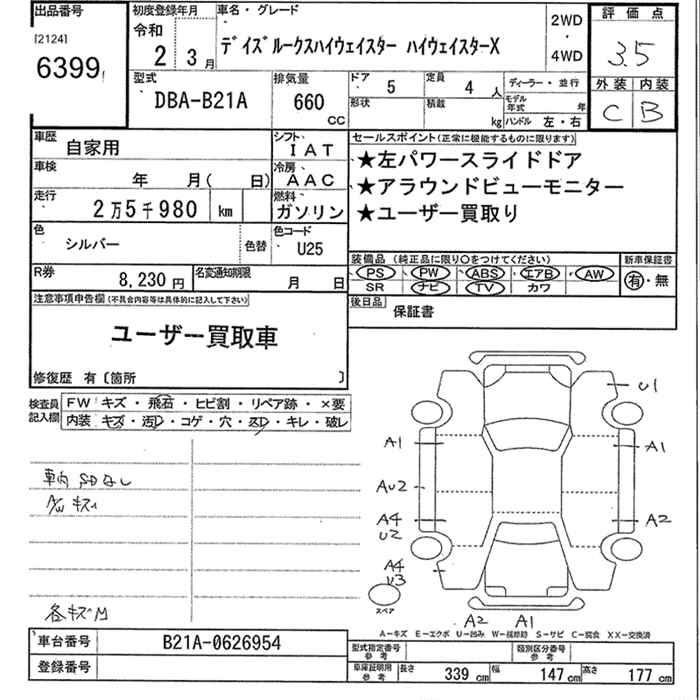 出品番号
[2124]
6399
初度登録年月
令和
2 3月
車名・グレード
デイズルークスハイウェイスター ハイウェイスターX
2WD
・
4WD
評価点
3.5
外装 内装
C B
型式
DBA-B21A
排気量
660
CC
ドア 5
形状
定員 4 人
積載 kg
ディーラー・並行
モデル年式 年
ハンドル 左・右
車歴 自家用
シフト IAT
車検 年 月( 日)
冷房 AAC
走行 2万5千980 km
燃料 ガソリン
色 シルバー
色替
色コード U25
R券 8,230円
名変通知期限 月 日
セールスポイント(正常に機能するものに限ります)
★左パワースライドドア
★アラウンドビューモニター
★ユーザー買取り
装備品(純正品に限り○をつけてください)
PS PW ABS エアB AW
SR ナビ TV カワ
新車保証書
有・無
後日品 保証書
注意事項申告欄(不具合内容等は具体的に記入して下さい)
ユーザー買取車
修復歴 有〔箇所 〕
検査員記入欄
FW キズ・飛石・ヒビ割・リペア跡・×要
内装 キズ・汚レ・コゲ・穴・スレ・キレ・破レ
車内 SDなし
A/W キズ
各キズM
U1
A1
A1
AU2
A4
U2
A2
A4
U3
スペア
A2 A1
A-キズ E-エクボ U-凹み W-補修跡 S-サビ C-腐食 XX-交換済
車台番号 B21A-0626954
登録番号
型式指定番号 参考
類別区分番号 参考
車庫証明用 参考
長さ 339 cm 幅 147 cm 高さ 177 cm